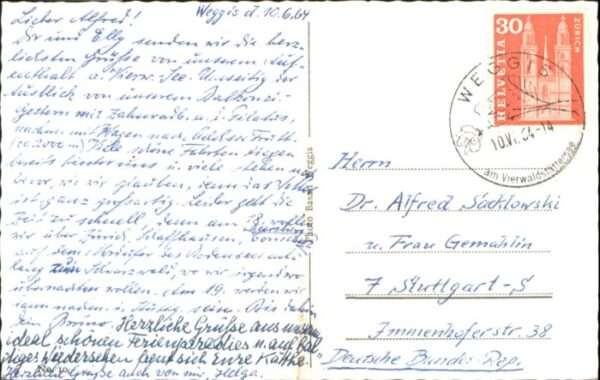 Weggis d. 10.6.64
Lieber Alfred!
Dir und Elly senden wir die herz-
lichsten Grüsse von unserem Auf-
enthalt a. Vierw. See. Umseitig der
Ausblick von unserem Balkonzi.-
Gestern mit Zahnradb. a. d. Pilatus,
nachm. mit Wagen nach Frutt
(ca. 2000 m) Viele schöne Fahrten liegen
bereits hinter uns u. viele stehen noch
bevor, wie wir glauben, denn das Wetter
ist ganz großartig. Leider geht die
Zeit zu schnell denn am wollen
wir über Zürich, Schaffhausen,
auf dem des Bodensee ent-
lang zum Schwarzwald, wo wir irgendwo
übernachten wollen. Am 19. werden wir
dann sein. Bis dahin
Dein Bruno. Herzliche Grüße aus unserm
ideal schönen Ferienparadies u. auf bal-
diges Wiedersehen freut sich Eure Käthe
Herzliche Grüße auch von mir, Helga.
HELVETIA
30
ZÜRICH
WEGGIS
10.VI.64-14
am Vierwaldstättersee
Herrn
Dr. Alfred Sadlowski
u. Frau Gemahlin
7 Stuttgart-S
Immenhoferstr. 38
Deutsche Bundes-Rep.